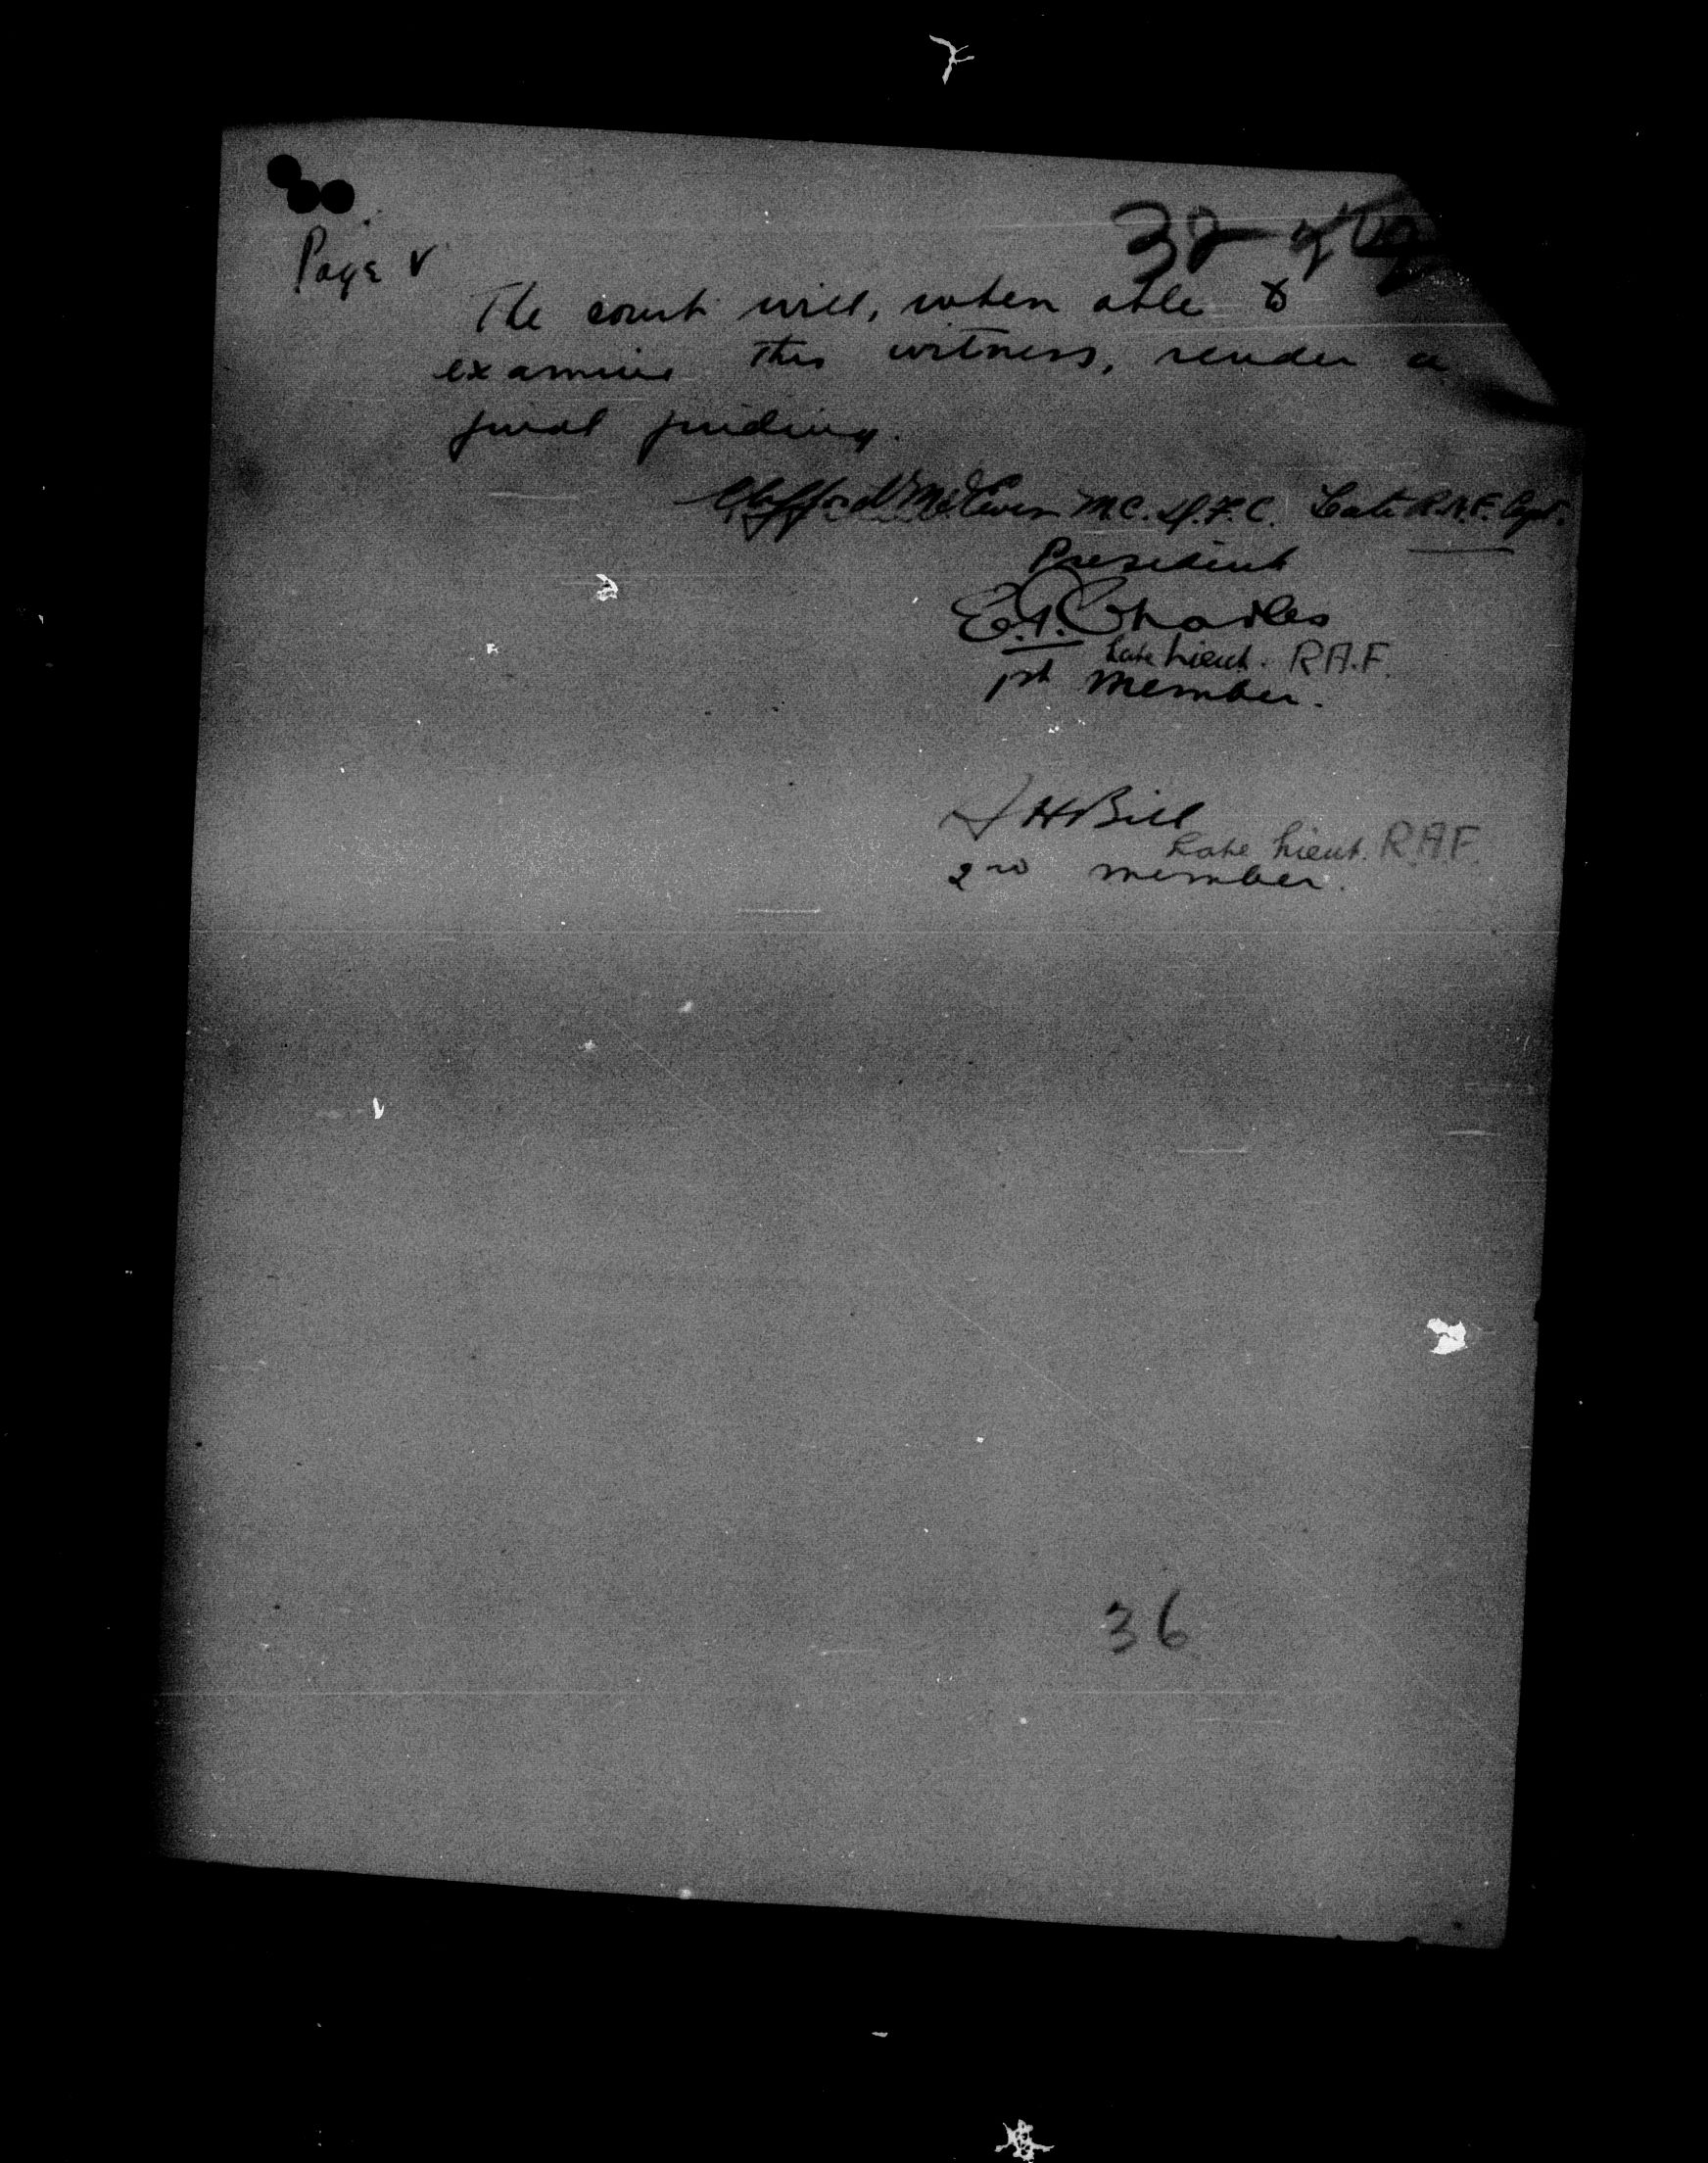 Page V
The court will, when able to
examine this witness, render a
final finding.
Clifford McEwen M.C. D.F.C. Late R.A.F. Capt.
President
E.A. Charles
Late Lieut. R.A.F.
1st Member.
H Bill
Late Lieut. R.A.F.
2nd member.
36